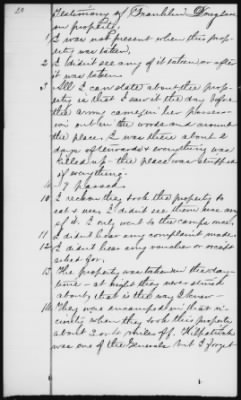 20
Testimony of Franklin Douglass
on property.
1 I was not present when this prop-
erty was taken.
2 I didn't see any of it taken or after
it was taken.
3 All I can state about this prop-
erty is that I saw it the day before
the army came in his possess-
ion out in the woods and around
the place. I was there about 2
days afterwards & everything was
killed up - the place was stripped
of everything.
4 - 9 passed.
10 I reckon they took the property to
eat & use, I didn't see them use any
of it. I only went to the camps once.
11 I didn't hear any complaint made.
12 I didn't hear any voucher or receipt
asked for.
13 The property was taken in the day-
time - at night they never struck
about, that is the way I know -
14 They were encamped in that vi-
cinity when they took this property
about 2 or 4 miles off. Kilpatrick
was one of the Generals but I forget